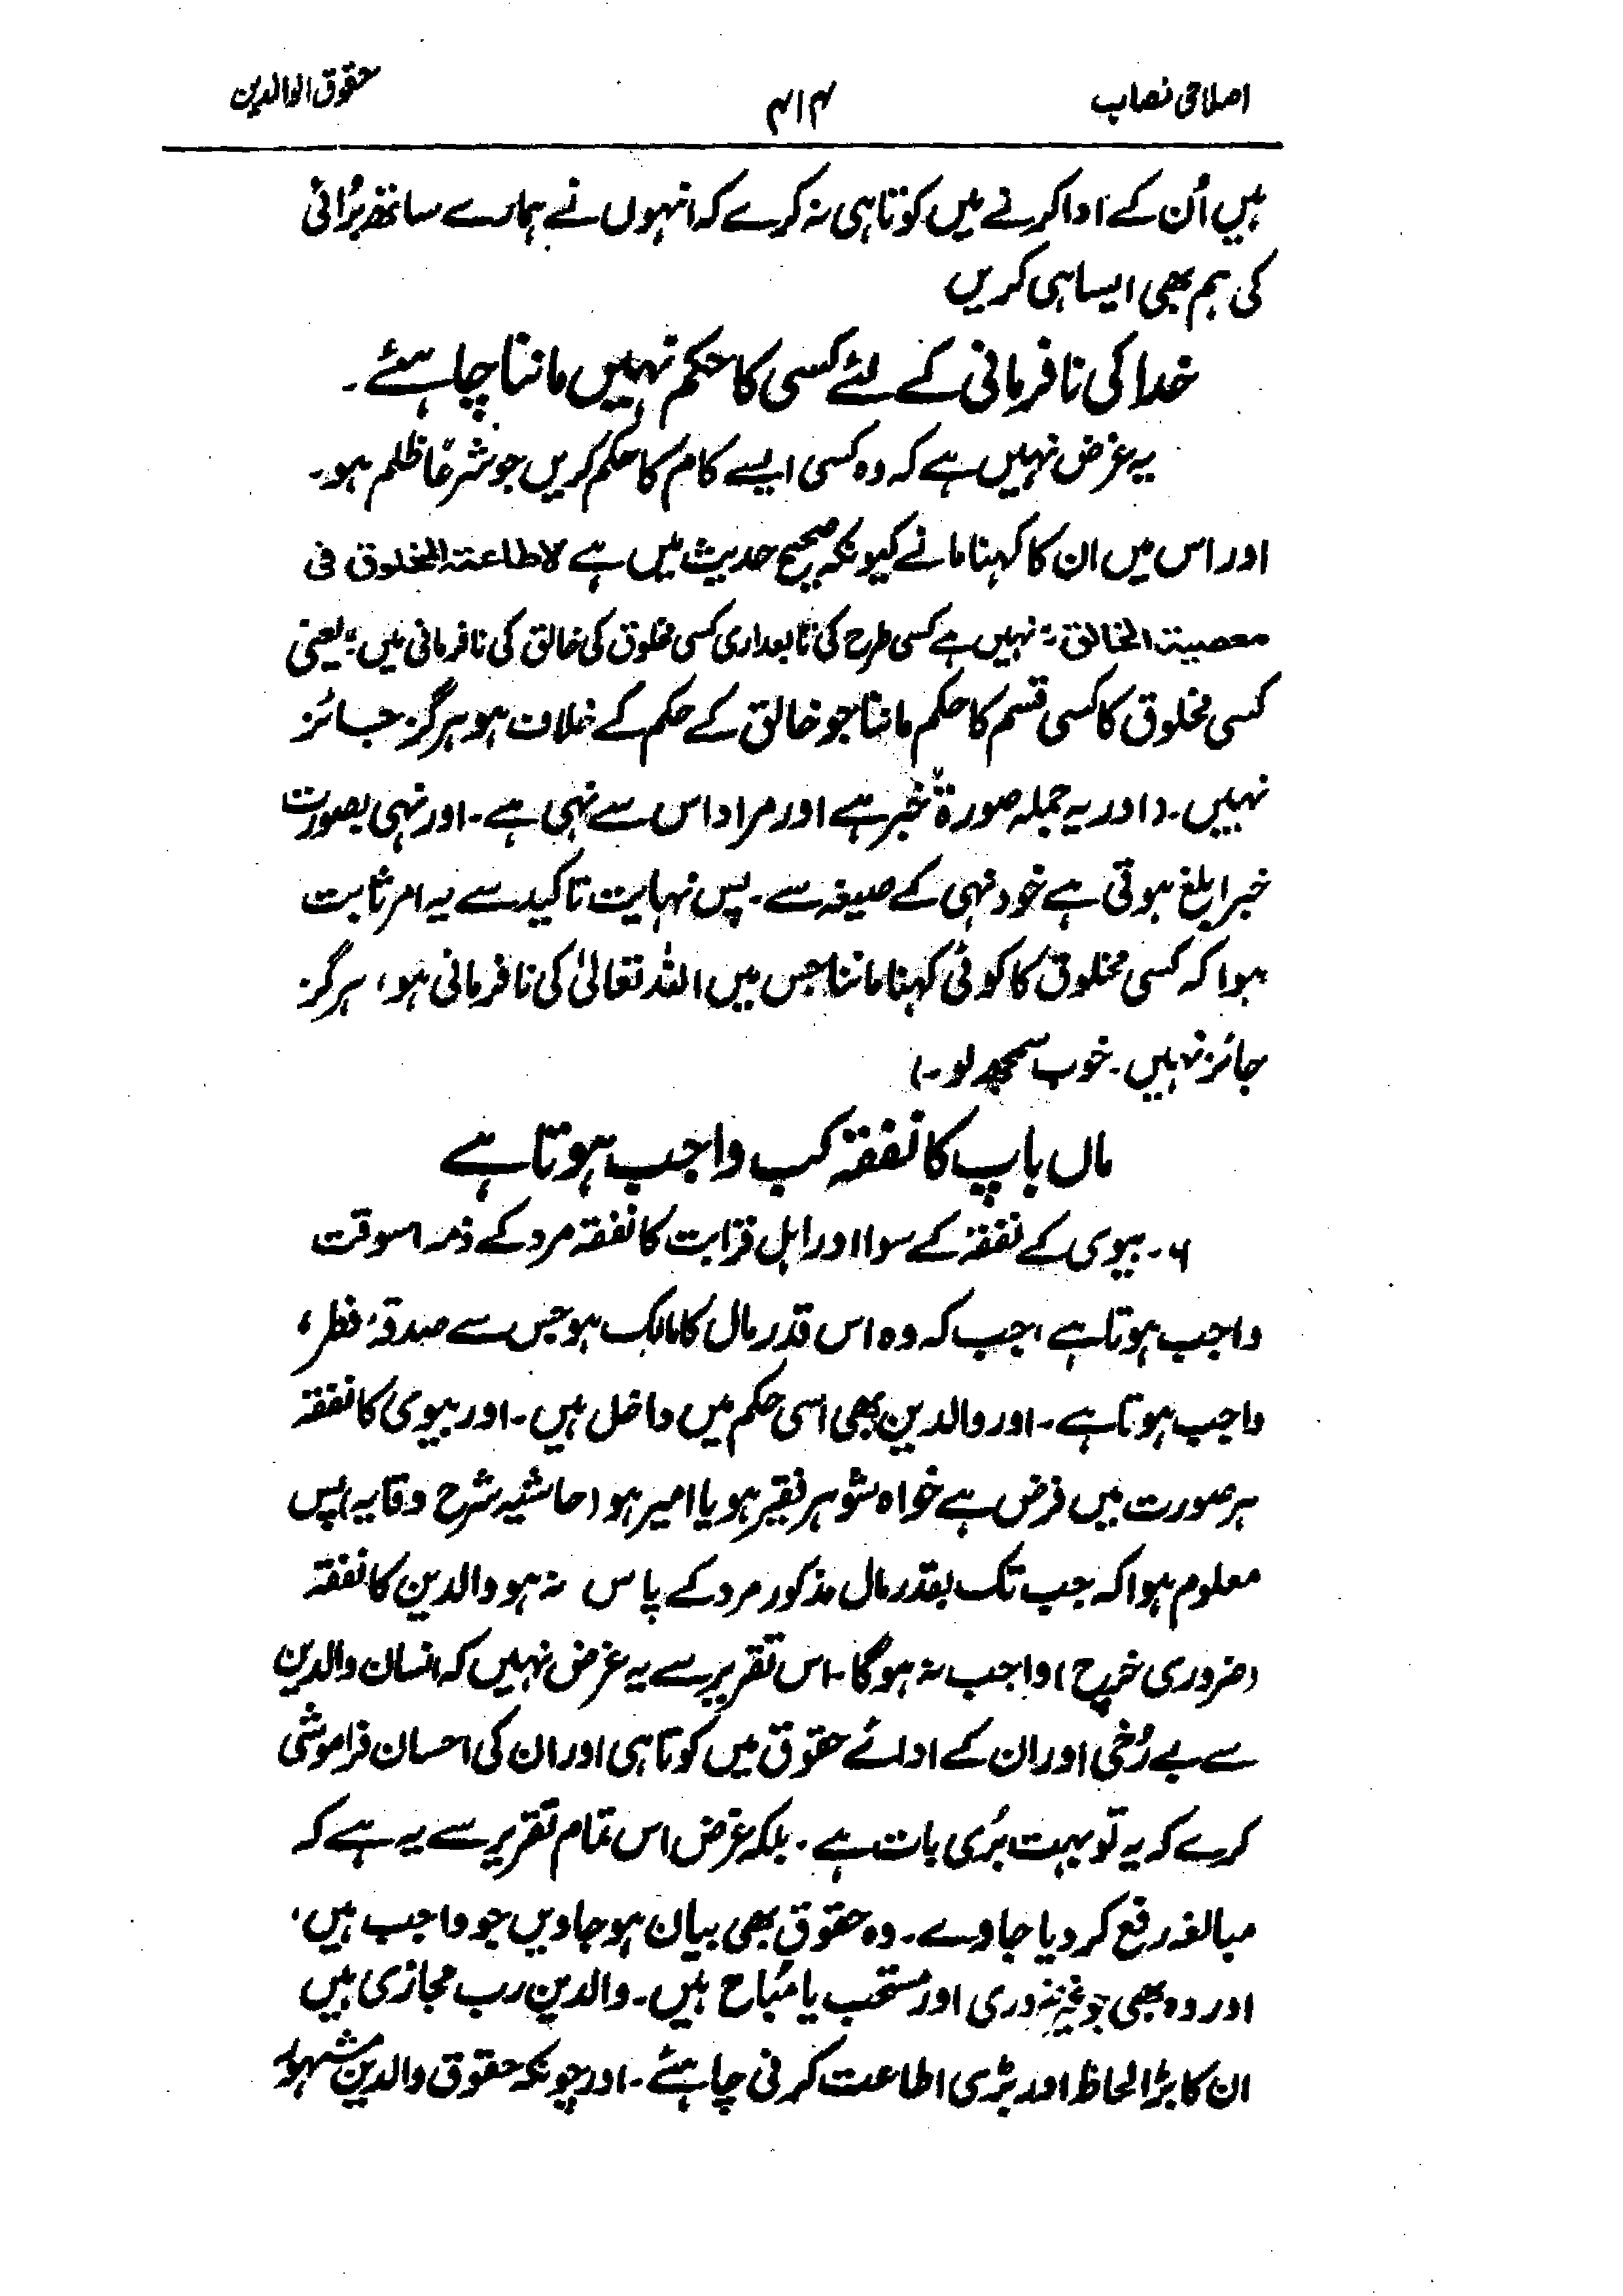 اصلاحی نصاب ۴۱۴ حقوق الوالدین
ہیں اُن کے ادا کرنے میں کوتاہی نہ کرے کہ انہوں نے ہمارے ساتھ بُرائی
کی ہم بھی ایسا ہی کریں
خدا کی نافرمانی کے لئے کسی کا حکم نہیں ماننا چاہئے۔
یہ غرض نہیں ہے کہ وہ کسی ایسے کام کا حکم کریں جو شرعًا ظلم ہو۔
اور اس میں ان کا کہنا مانے کیونکہ صحیح حدیث میں ہے لاطاعۃ المخلوق فی
معصیۃ الخالق : نہیں ہے کسی طرح کی تابعداری کسی مخلوق کی خالق کی نافرمانی میں ؛ یعنی
کسی مخلوق کا کسی قسم کا حکم ماننا جو خالق کے حکم کے خلاف ہو ہرگز جائز
نہیں۔ (اور یہ جملہ صورۃً خبر ہے اور مراد اس سے نہی ہے۔ اور نہی بصورت
خبر ابلغ ہوتی ہے خود نہی کے صیغہ سے۔ پس نہایت تاکید سے یہ امر ثابت
ہوا کہ کسی مخلوق کا کوئی کہنا ماننا جس میں اللہ تعالیٰ کی نافرمانی ہو، ہرگز
جائز نہیں۔ خوب سمجھ لو۔)
ماں باپ کا نفقہ کب واجب ہوتا ہے
۶۔ بیوی کے نفقہ کے سوا اور اہل قرابت کا نفقہ مرد کے ذمہ اسوقت
واجب ہوتا ہے، جب کہ وہ اس قدر مال کا مالک ہو جس سے صدقۂ فطر،
واجب ہوتا ہے۔ اور والدین بھی اسی حکم میں داخل ہیں۔ اور بیوی کا نفقہ
ہر صورت میں فرض ہے خواہ شوہر فقیر ہو یا امیر ہو (حاشیہ شرح وقایہ) پس
معلوم ہوا کہ جب تک بقدر مال مذکور مرد کے پاس نہ ہو والدین کا نفقہ
(ضروری خرچ) واجب نہ ہوگا۔ اس تقریر سے یہ غرض نہیں کہ انسان والدین
سے بے رُخی اور ان کے ادائے حقوق میں کوتاہی اور ان کی احسان فراموشی
کرے کہ یہ تو بہت بُری بات ہے۔ بلکہ غرض اس تمام تقریر سے یہ ہے کہ
مبالغہ رفع کر دیا جاوے۔ وہ حقوق بھی بیان ہو جاویں جو واجب ہیں،
اور وہ بھی جو غیر ضروری اور مستحب یا مُباح ہیں۔ والدین رب مجازی ہیں
ان کا بڑا لحاظ اور بڑی اطاعت کرنی چاہئے۔ اور چونکہ حقوق والدین مشہور